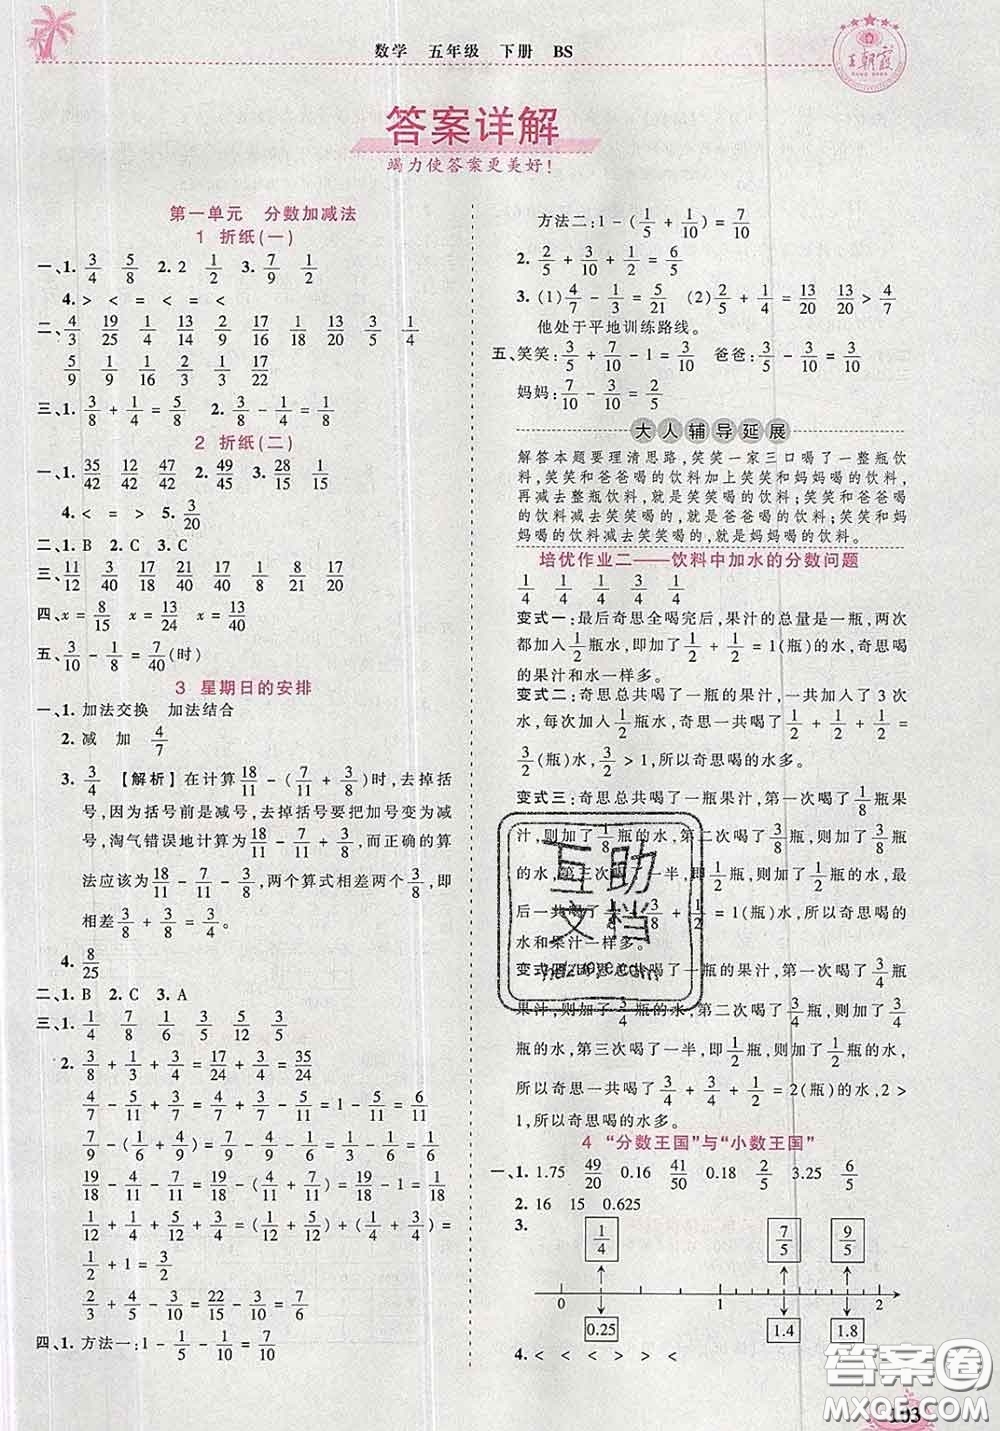 数学 五年级 下册 BS
王朝霞
答案详解
竭力使答案更美好!
第一单元 分数加减法
1 折纸(一)
一、1. 3/4 5/8 2. 2 1/2 3. 7/9 1/2
4. > < = < = <
二、4/3 19/25 1/4 13/14 2/9 17/16 1/18 13/20 3/5 1/4
5/9 1/9 1/16 2/3 17/22
三、1. 3/8 + 1/4 = 5/8 2. 3/8 - 1/4 = 1/8
2 折纸(二)
一、1. 35/42 12/42 47/42 2. 49/45 3. 28/15 1/15
4. < = > 5. 3/20
二、1. B 2. C 3. C
三、11/12 13/40 17/18 17/40 1/18 1/8 17/21 9/40
四、x = 8/15 x = 13/24 x = 13/40
五、3/10 - 1/8 = 7/40(时)
3 星期日的安排
一、1. 加法交换 加法结合
2. 减 加 4/7
3. 3/4 【解析】在计算18/11 - (7/11 + 3/8)时,去掉括
号,因为括号前是减号,去掉括号要把加号变为减
号,淘气错误地计算为18/11 - 7/11 + 3/8,而正确的算
法应该为18/11 - 7/11 - 3/8,两个算式相差两个3/8,即
相差3/8 + 3/8 = 3/4。
4. 8/25
二、1. B 2. C 3. A
三、1. 1/4 7/8 1/6 3/5 5/12 3/5
2. 3/8 + 1/3 + 3/4 = 17/24 + 3/4 = 35/24
4/7 - 5/11 + 3/7 = 4/7 + 3/7 - 5/11 = 1 - 5/11 = 6/11
7/9 - (1/6 + 4/9) = 7/9 - 4/9 - 1/6 = 1/3 - 1/6 = 1/6
19/18 - 4/11 - 7/11 = 19/18 - (4/11 + 7/11) = 19/18 - 1 = 1/18
1/12 + 1/4 + 5/12 + 3/4 = (1/12 + 5/12) + (1/4 + 3/4) =
1/2 + 1 = 3/2
2/3 + 4/5 - 3/10 = 22/15 - 3/10 = 7/6
四、1. 方法一:1 - 1/5 - 1/10 = 7/10
方法二:1 - (1/5 + 1/10) = 7/10
2. 2/5 + 3/10 + 1/2 = 6/5
3. (1) 4/7 - 1/3 = 5/21 (2) 2/5 + 1/4 = 13/20 13/20 > 4/7
他处于平地训练路线。
五、笑笑:3/5 + 7/10 - 1 = 3/10 爸爸:3/5 - 3/10 = 3/10
妈妈:7/10 - 3/10 = 2/5
大人辅导延展
解答本题要理清思路,笑笑一家三口喝了一整瓶饮
料,笑笑和爸爸喝的饮料加上笑笑和妈妈喝的饮料,
再减去整瓶饮料,就是笑笑喝的饮料;笑笑和爸爸喝
的饮料减去笑笑喝的,就是爸爸喝的饮料;笑笑和妈
妈喝的饮料减去笑笑喝的,就是妈妈喝的饮料。
培优作业二——饮料中加水的分数问题
1/4 1/4 1/4 1/4 1/4
变式一:最后奇思全喝完后,果汁的总量是一瓶,两次
都加入1/2瓶水,即加了1/2 + 1/2 = 1(瓶)的水,奇思喝
的果汁和水一样多。
变式二:奇思总共喝了一瓶的果汁,一共加入了 3 次
水,每次加入1/2瓶水,奇思一共喝了1/2 + 1/2 + 1/2 =
3/2(瓶)水,3/2 > 1,所以奇思喝的水多。
变式三:奇思总共喝了一瓶果汁,第一次喝了1/8瓶果
汁,则加了1/8瓶的水,第二次喝了3/8瓶,则加了3/8瓶
的水,第三次喝了一半,即1/2瓶,则加了1/2瓶的水,最
后一共喝了1/8 + 3/8 + 1/2 = 1(瓶)的水,所以奇思喝的
水和果汁一样多。
变式四:奇思总共喝了一瓶的果汁,第一次喝了3/4瓶
果汁,则加了3/4瓶的水,第二次喝了3/4瓶,则加了3/4
瓶的水,第三次喝了一半,即1/2瓶,则加了1/2瓶的水,
所以奇思一共喝了3/4 + 3/4 + 1/2 = 2(瓶)的水,2 >
1,所以奇思喝的水多。
4 “分数王国”与“小数王国”
一、1. 1.75 49/20 0.16 41/50 0.18 2/5 3.25 6/5
2. 16 15 0.625
3. 1/4 7/5 9/5
0 1 2
0.25 1.4 1.8
4. < < < > < <
互助
文档
答案圈
MXQE.COM
103